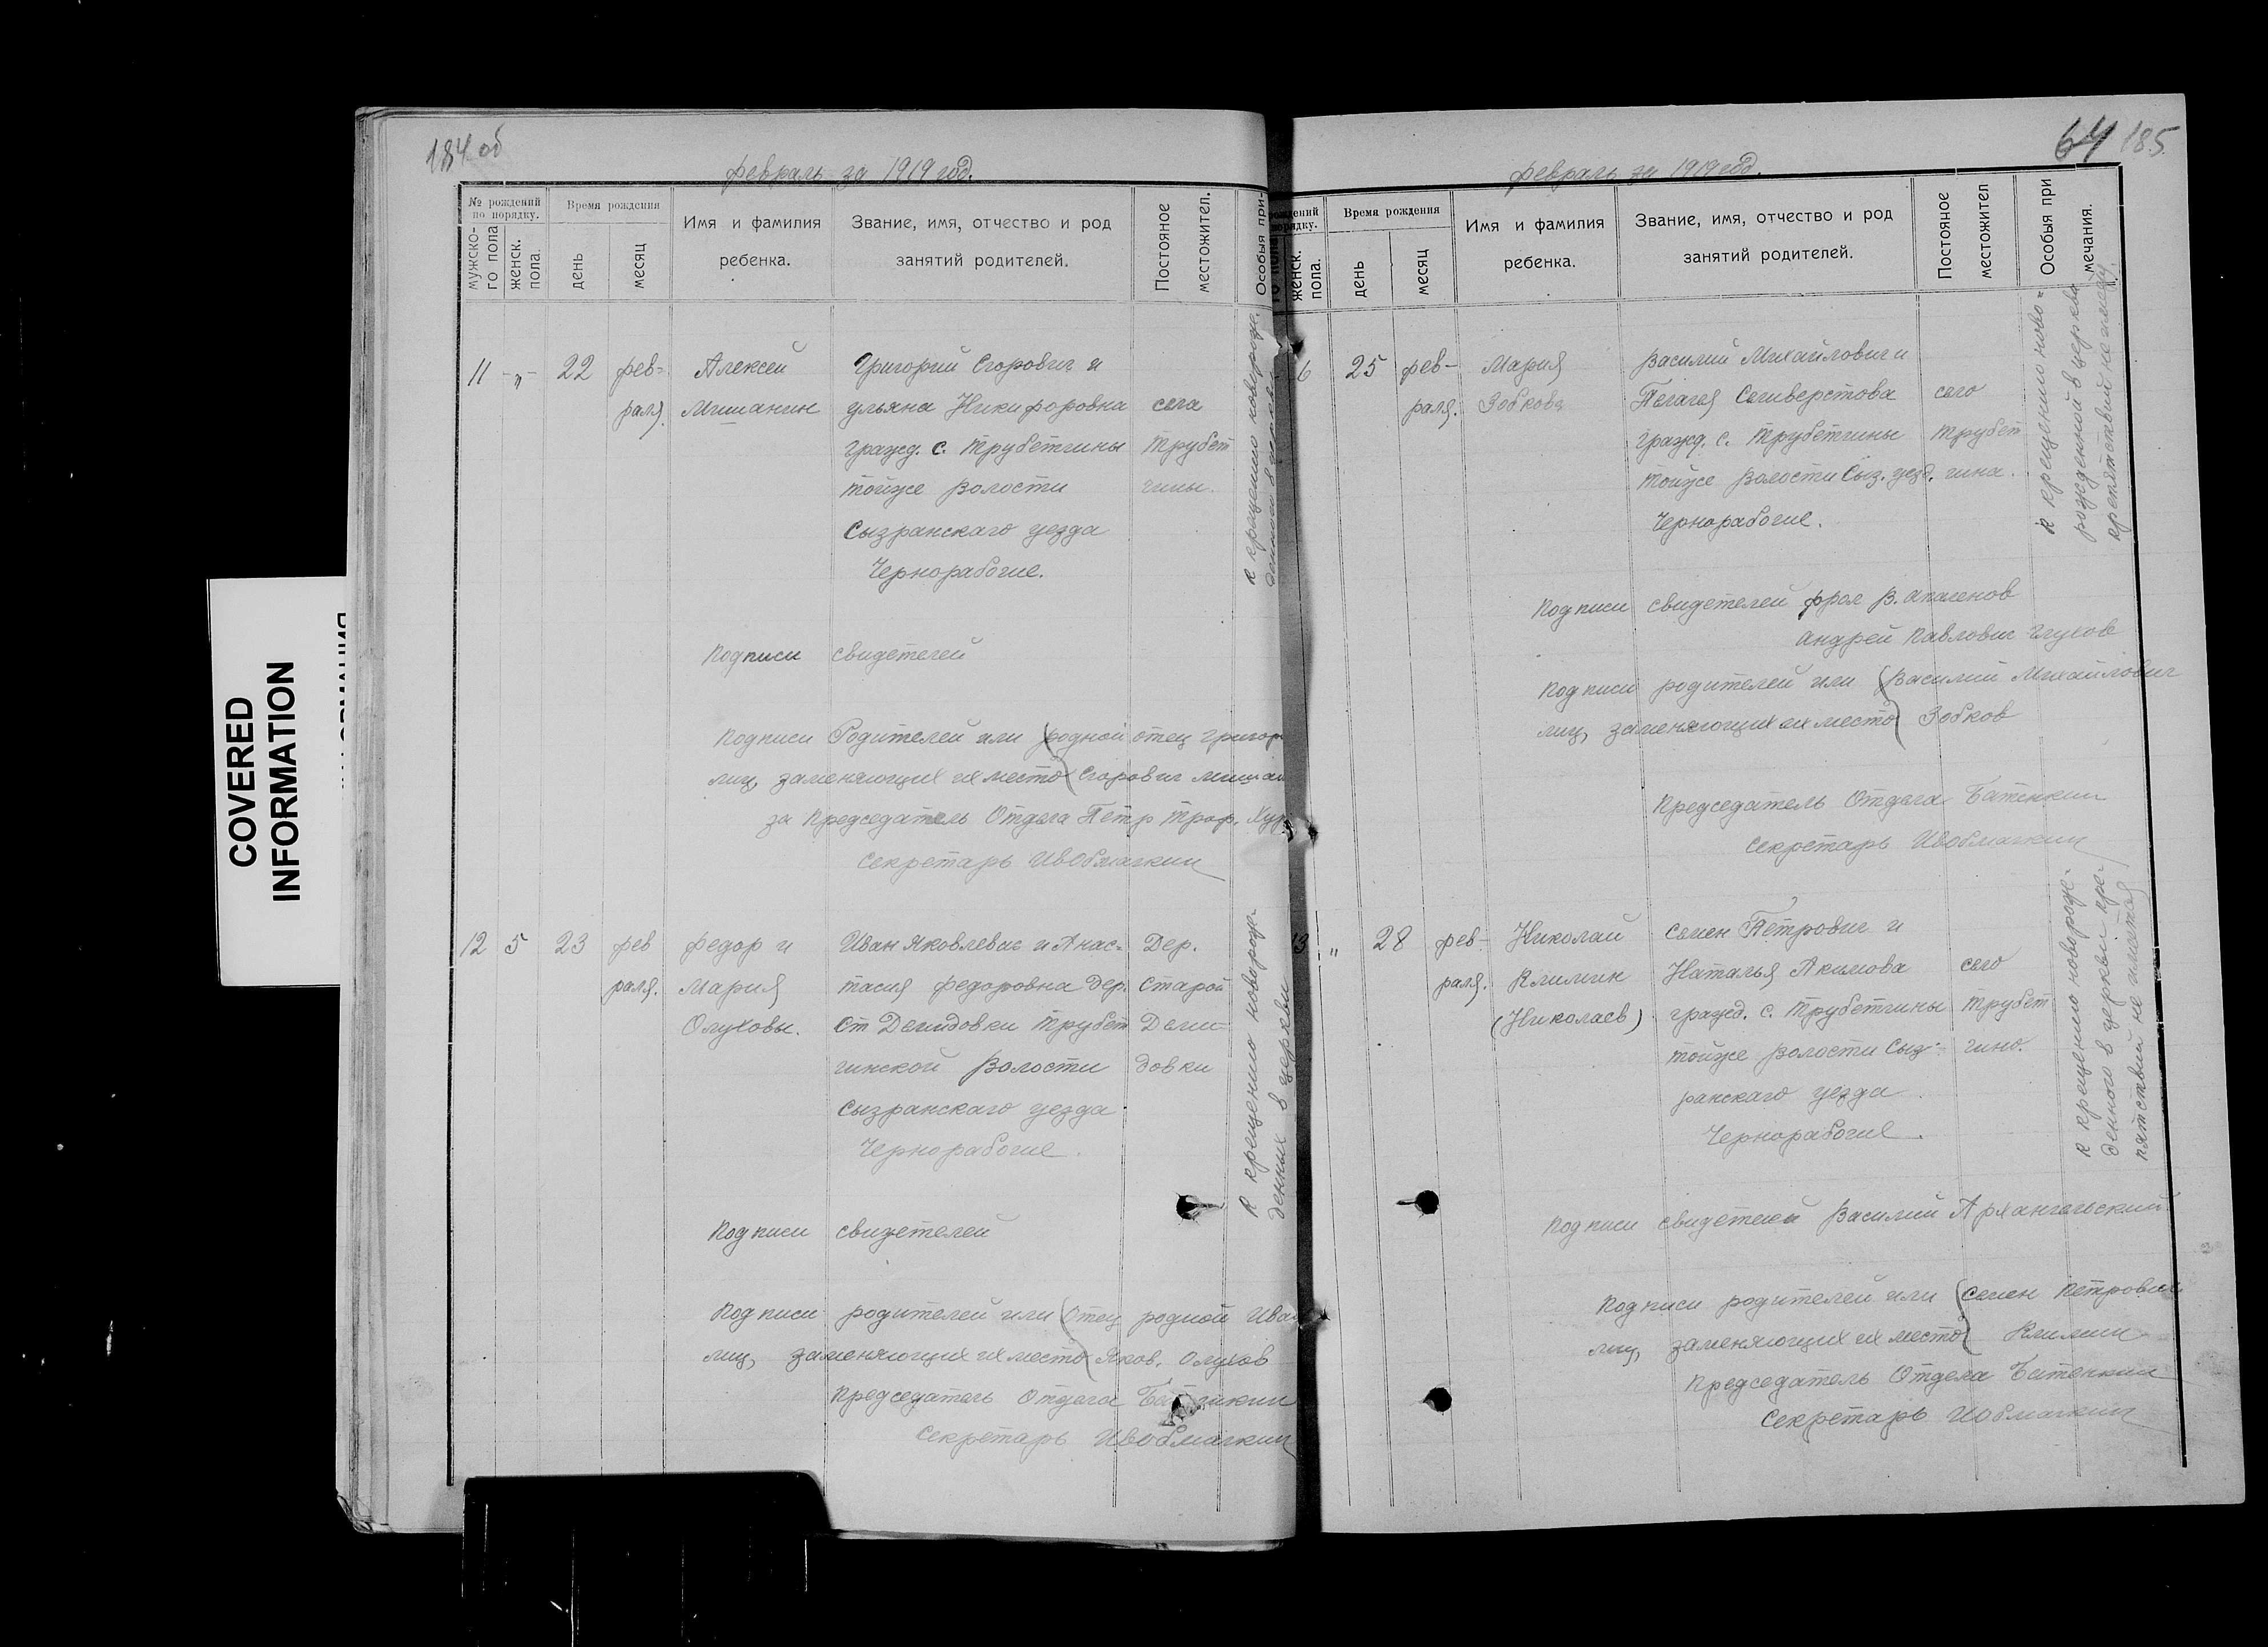 184 об
февраль за 1919 год.
№ рождений по порядку.
мужско-го пола
женск. пола.
Время рождения
день
месяц
Имя и фамилия ребенка.
Звание, имя, отчество и род занятий родителей.
Постояное местожител.
Особыя при-
11 -„- 22 фев- Алексей Григорий Егорович и
раля. Мишанин ульяна Никифоровна села
гражд. с. Трубетчины Трубет
тойже волости чины.
Сызранскаго уезда
Чернорабочие.
К крещению новорож.
Подписи свидетелей
Подписи Родителей или родной отец Григор
лиц, заменяющих их место Егорович Мишан
за Председатель Отдела Петр Троф.
Секретарь
12 5 23 фев Федор и Иван Яковлевич и Анас- Дер.
раля. Мария тасия Федоровна Дер. Старой
Олуховы. Ст Демидовки Трубет Деми-
чинской волости довки
Сызранскаго уезда
Чернорабочие.
К крещению новорож-
денных в церкви
Подписи свидетелей
Подписи родителей или Отец родной Иван
лиц, заменяющих их место Яков. Олухов
Председатель Отдела
Секретарь
64 185.
февраль за 1919 год.
рождений
порядку.
женск. пола.
Время рождения
день
месяц
Имя и фамилия ребенка.
Звание, имя, отчество и род занятий родителей.
Постояное местожител
Особыя при мечания.
6 25 фев- Мария Василий Михайлович и
раля. Зобкова Пелагея Селиверстова село
гражд. с. Трубетчины Трубет
тойже волости Сыз. уезд. чина.
Чернорабочие.
К крещению ново-
рожденной в церкви
препятствий не имеет.
Подписи свидетелей Фрол В.
Андрей Павлович Глухов
Подписи родителей или Василий Михайлович
лиц, заменяющих их место Зобков
Председатель Отдела Батенкин
Секретарь
13 „ 28 фев- Николай Семен Петрович и
раля. Климин Наталья Акимова село
(Николаев) гражд. с. Трубетчины Трубет
тойже волости Сыз- чино.
ранскаго уезда
Чернорабочие.
К крещению новорож-
денного в церкви пре-
пятствий не имеется
Подписи свидетелей Василий Архангельский
Подписи родителей или Семен Петрович
лиц, заменяющих их место Климин
Председатель Отдела Батенкин
Секретарь
COVERED
INFORMATION